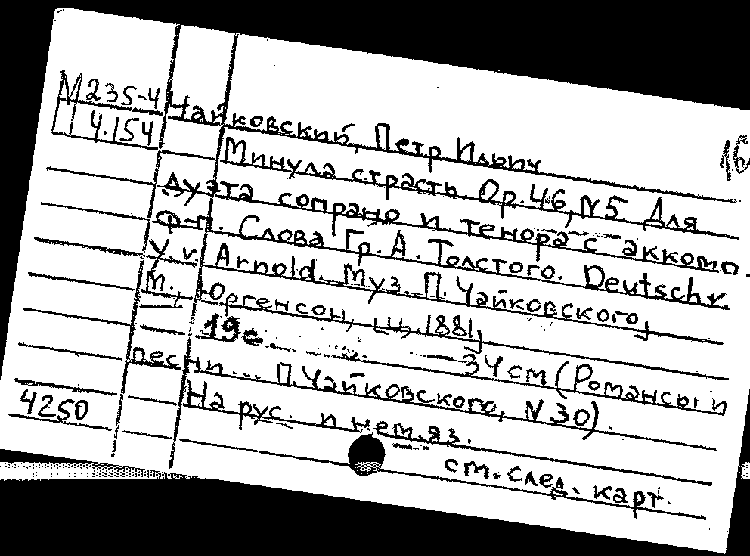 М 235-4
4.154
16
Чайковский, Петр Ильич
Минула страсть. Op. 46, N5. Для
дуэта сопрано и тенора с аккомп.
ф-п. Слова Гр. А. Толстого. Deutsch v.
Arnold. Муз. П. Чайковского,
М., Юргенсон, ц. 1881,
19с. 34см (Романсы и
песни... П. Чайковского, N30).
На рус. и нем. яз.
4250
см. след. карт.